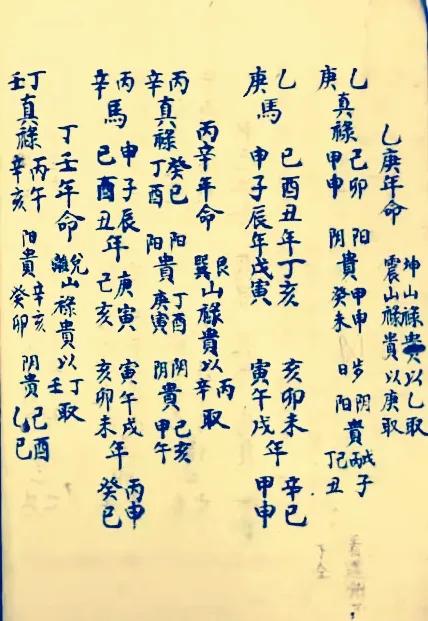 乙庚年命 坤山祿貴以乙取 震山祿貴以庚取
乙庚真祿 己卯 甲申 陽陰貴 甲申 癸未 陰陽貴 子 丑
乙庚馬 己酉丑年丁亥 申子辰年戊寅 亥卯未 寅午戌年 辛巳 甲申
丙辛年命 艮巽山祿貴以丙辛取
丙辛真祿 癸巳 丁酉 陽陽貴 丁酉 庚寅 陰陰貴 己亥 甲午
丙辛馬 申子辰 己酉丑年 庚寅 己亥 寅午戌 亥卯未年 丙申 癸巳
丁壬年命 兌離山祿貴以丁壬取
丁壬真祿 丙午 辛亥 陽貴 辛亥 癸卯 陰貴 己酉 乙巳